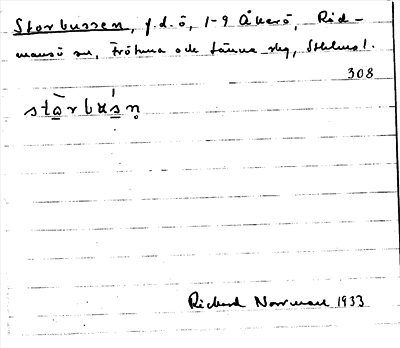 Storbussen, f.d. ö, 1-9 Åkerö, Råd-
mansö sn, Frötuna och Länna skg, Sthlms l.
308
stårbusn̥
Richard Norrman 1933